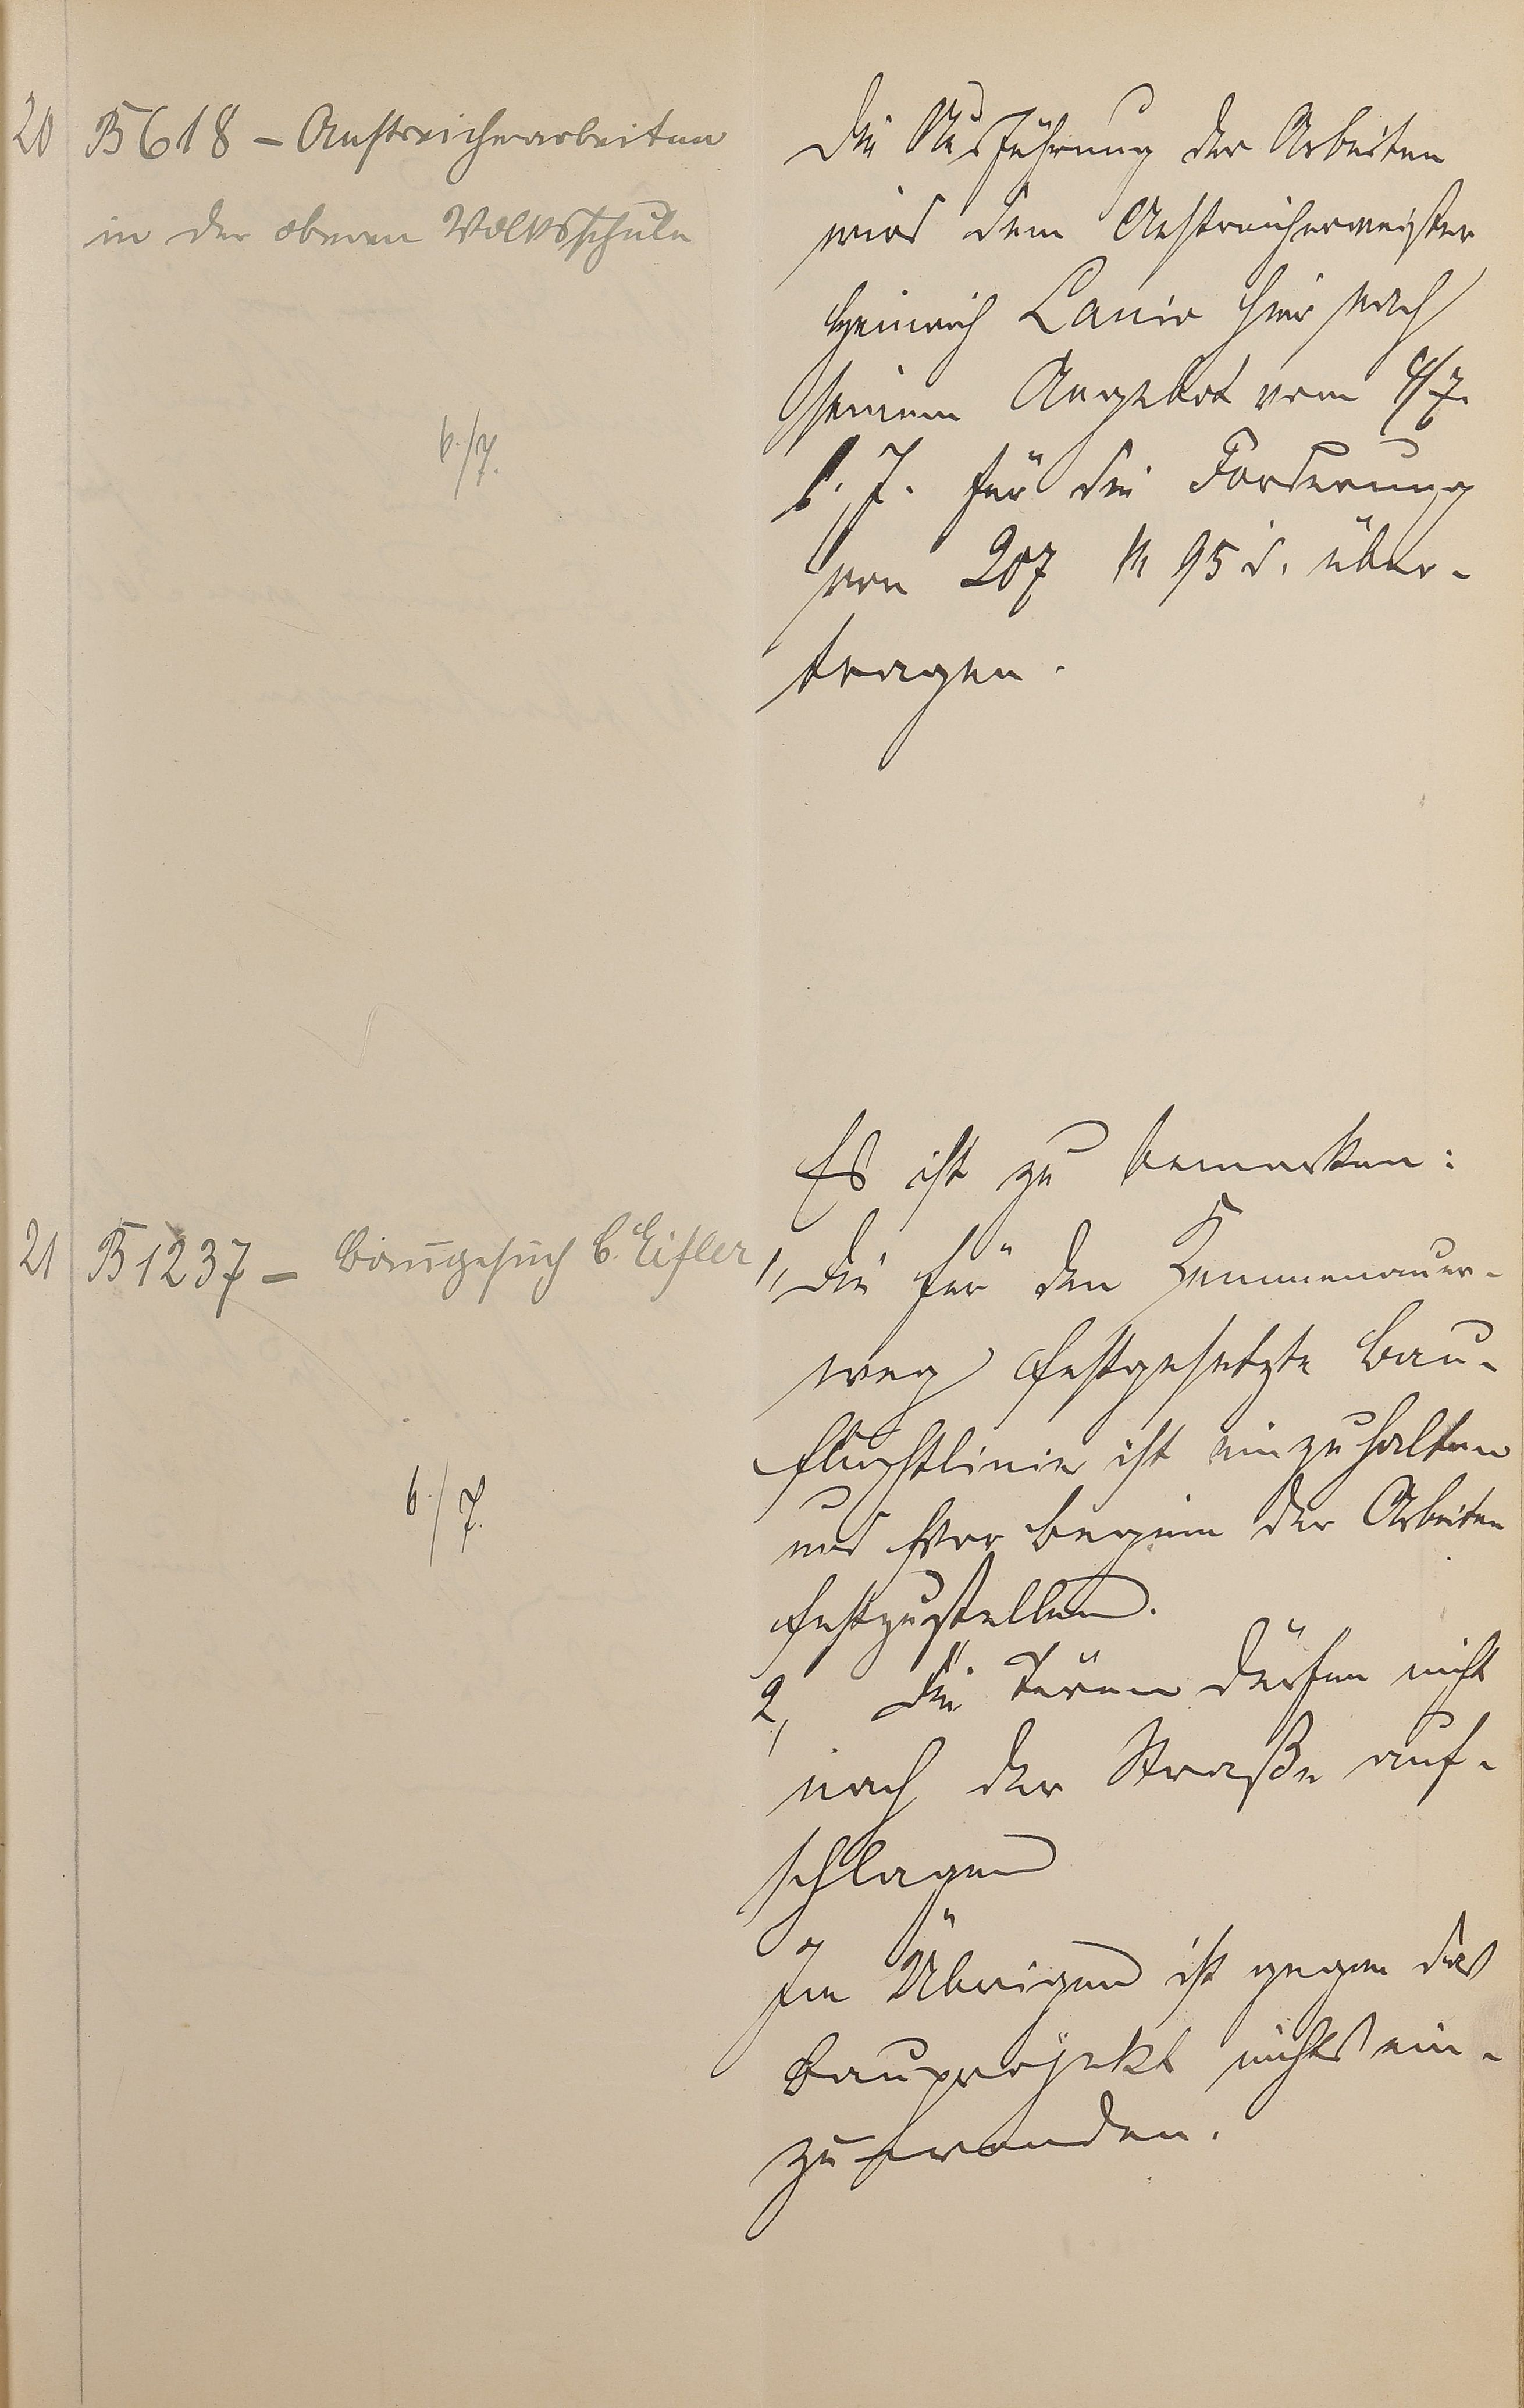 20 B 618 - Anstreicherarbeiten
in der oberen Volksschule
6./7.
Die Ausführung der Arbeiten
wird dem Anstreichermeister
Heinrich Lanio hier nach
seinem Angebot vom 4/7.
l. J. für die Forderung
von 207 M 95 d. über-
tragen.
21 B 1237 - Baugesuch C. Eifler
6./7.
Es ist zu bemerken:
1, Die für den Kemmenauer-
weg festgesetzte Bau-
fluchtlinie ist einzuhalten
und vor Beginn der Arbeiten
festzustellen.
2, Die Türen dürfen nicht
nach der Straße auf-
schlagen
Im Übrigen ist gegen das
Bauprojekt nichts ein-
zuwenden.